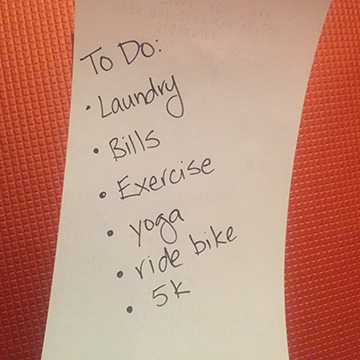 To Do:
• Laundry
• Bills
• Exercise
• yoga
• ride bike
• 5k